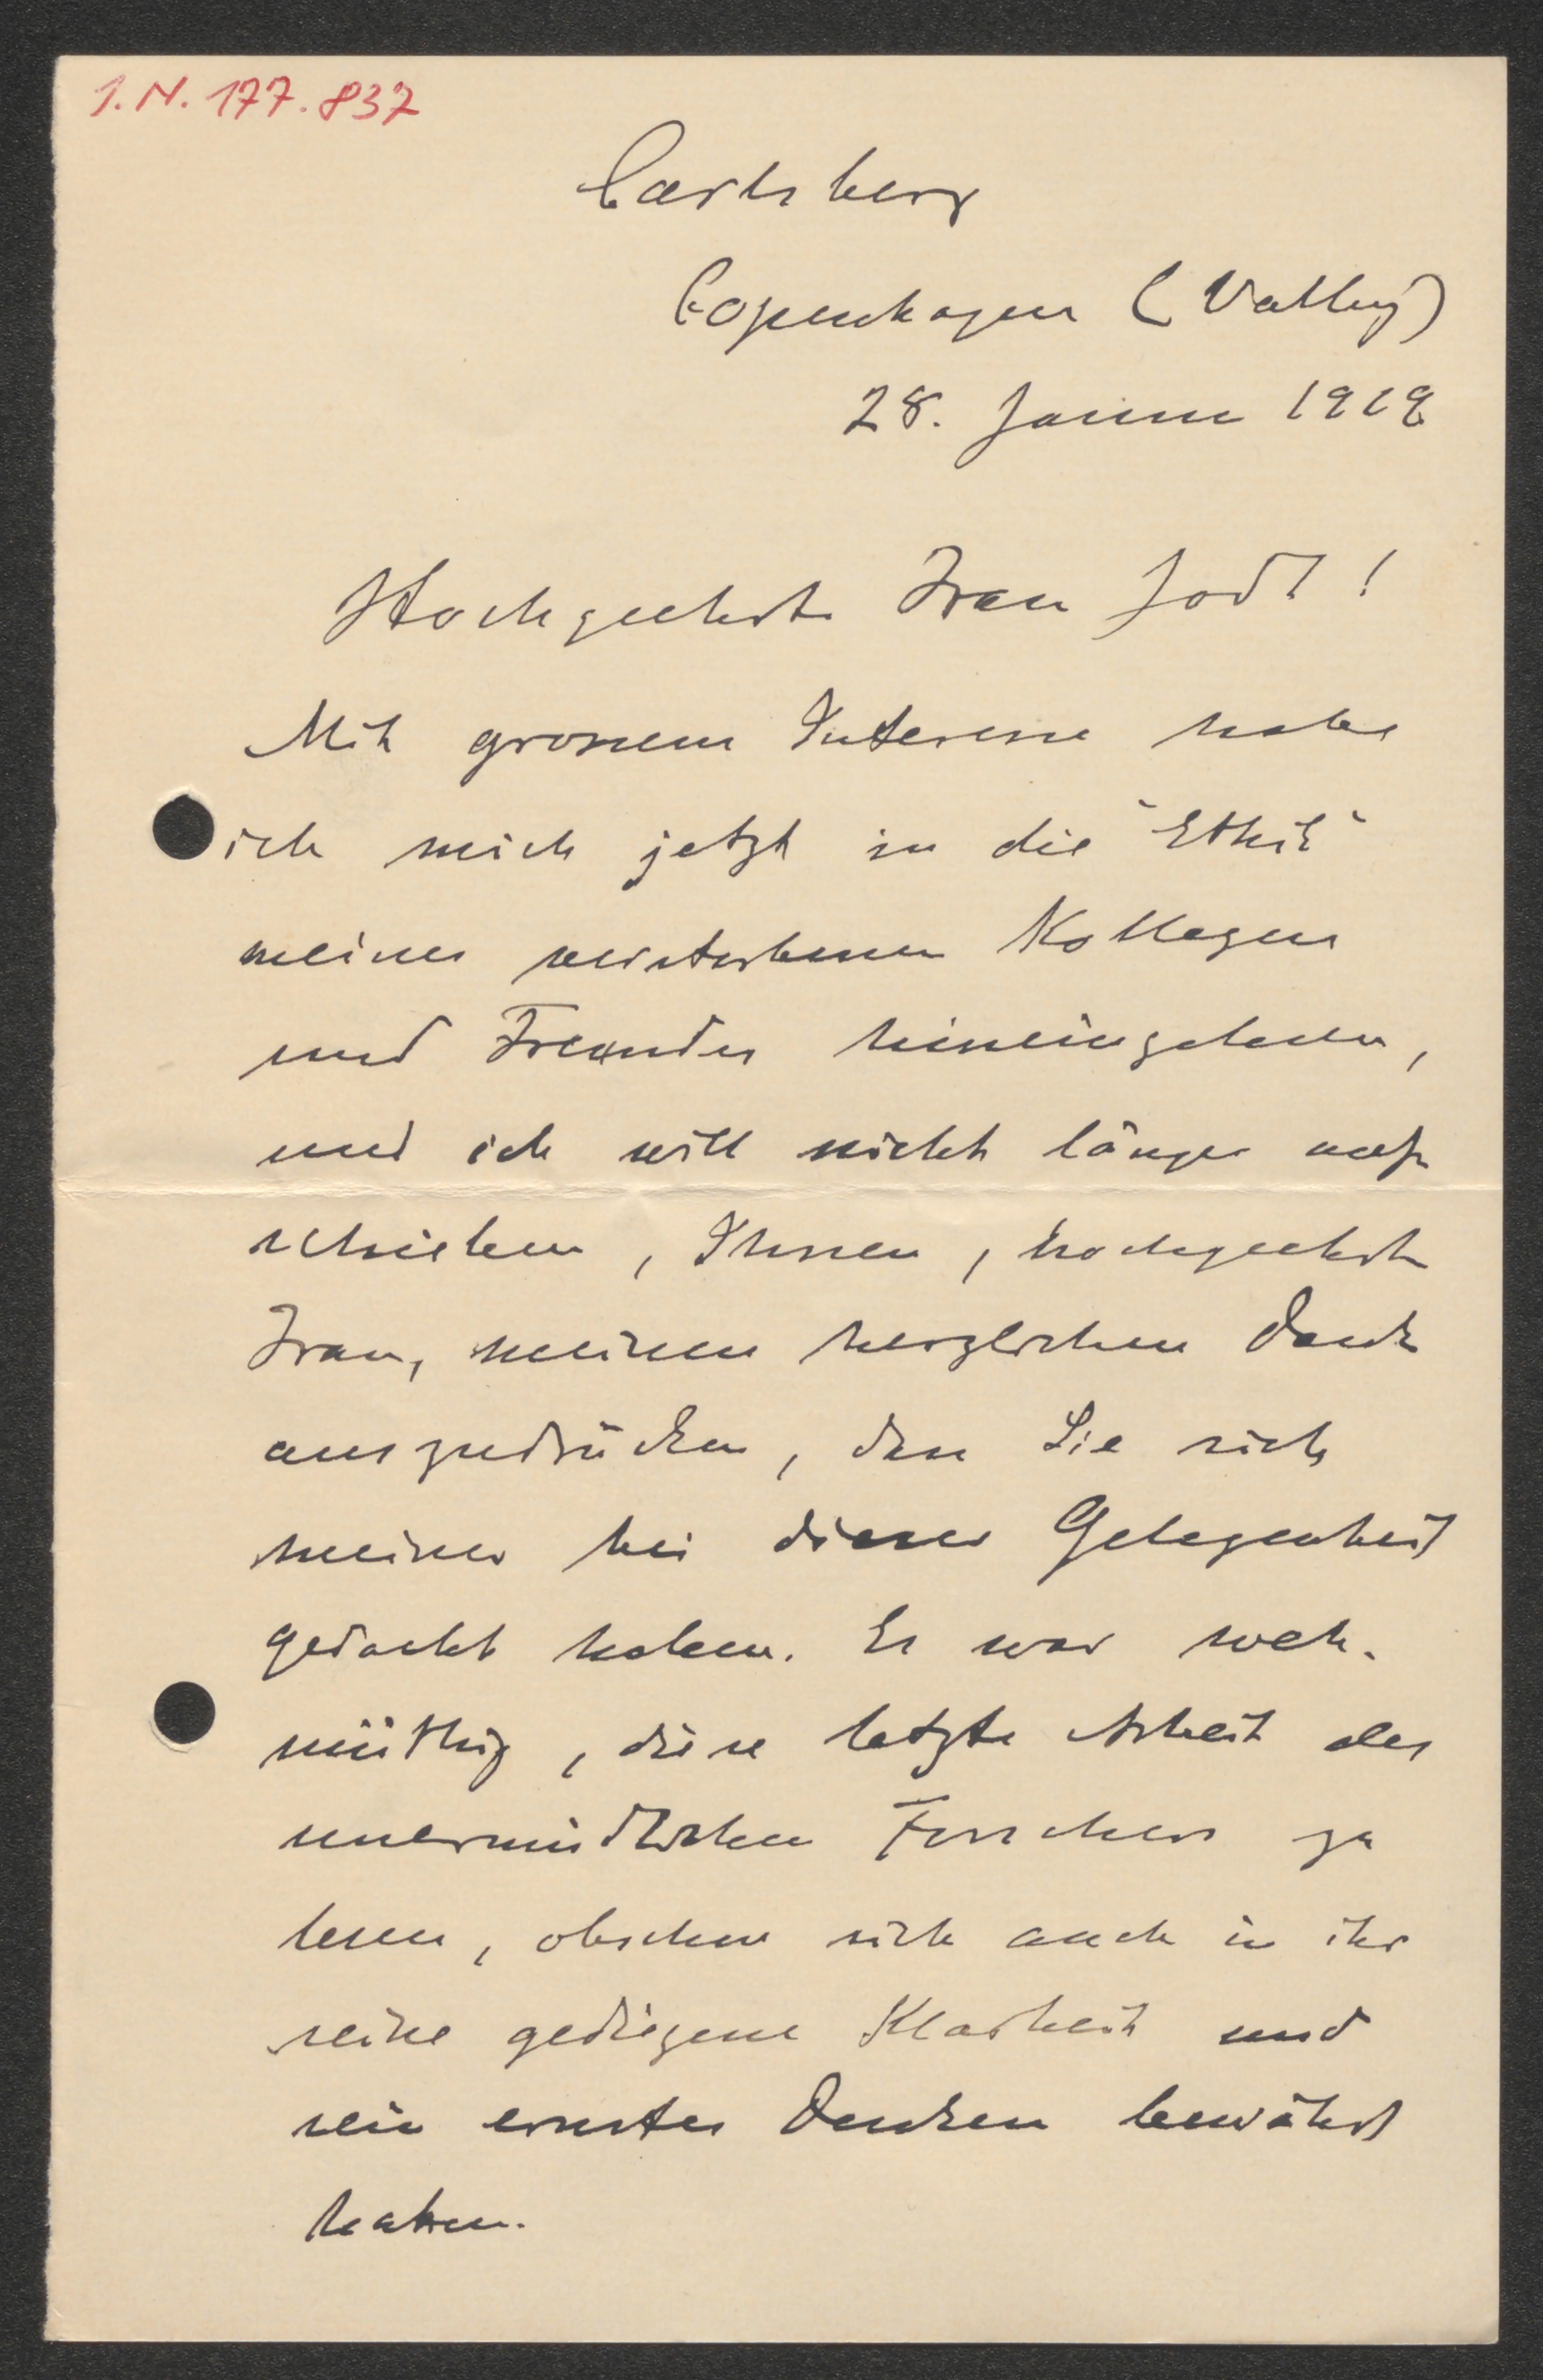 I.N. 177.837
Carlsberg
Copenhagen (Valby)
28. Januar 1919
Hochgeehrte Frau Jodl!
Mit grossem Interesse habe
ich mich jetzt in die "Ethik"
meines verstorbenen Kollegen
und Freundes hineingelesen,
und ich will nicht länger auf
schieben, Ihnen, hochgeehrte
Frau, meinen herzlichen Dank
auszudrücken, dass Sie sich
meiner bei dieser Gelegenheit
gedacht haben. Es war weh-
müthig, diese letzte Arbeit des
unermüdlichen Forschers zu
lesen, obschon sich auch in ihr
seine gediegene Klarheit und
sein ernstes Denken bewährt
haben.